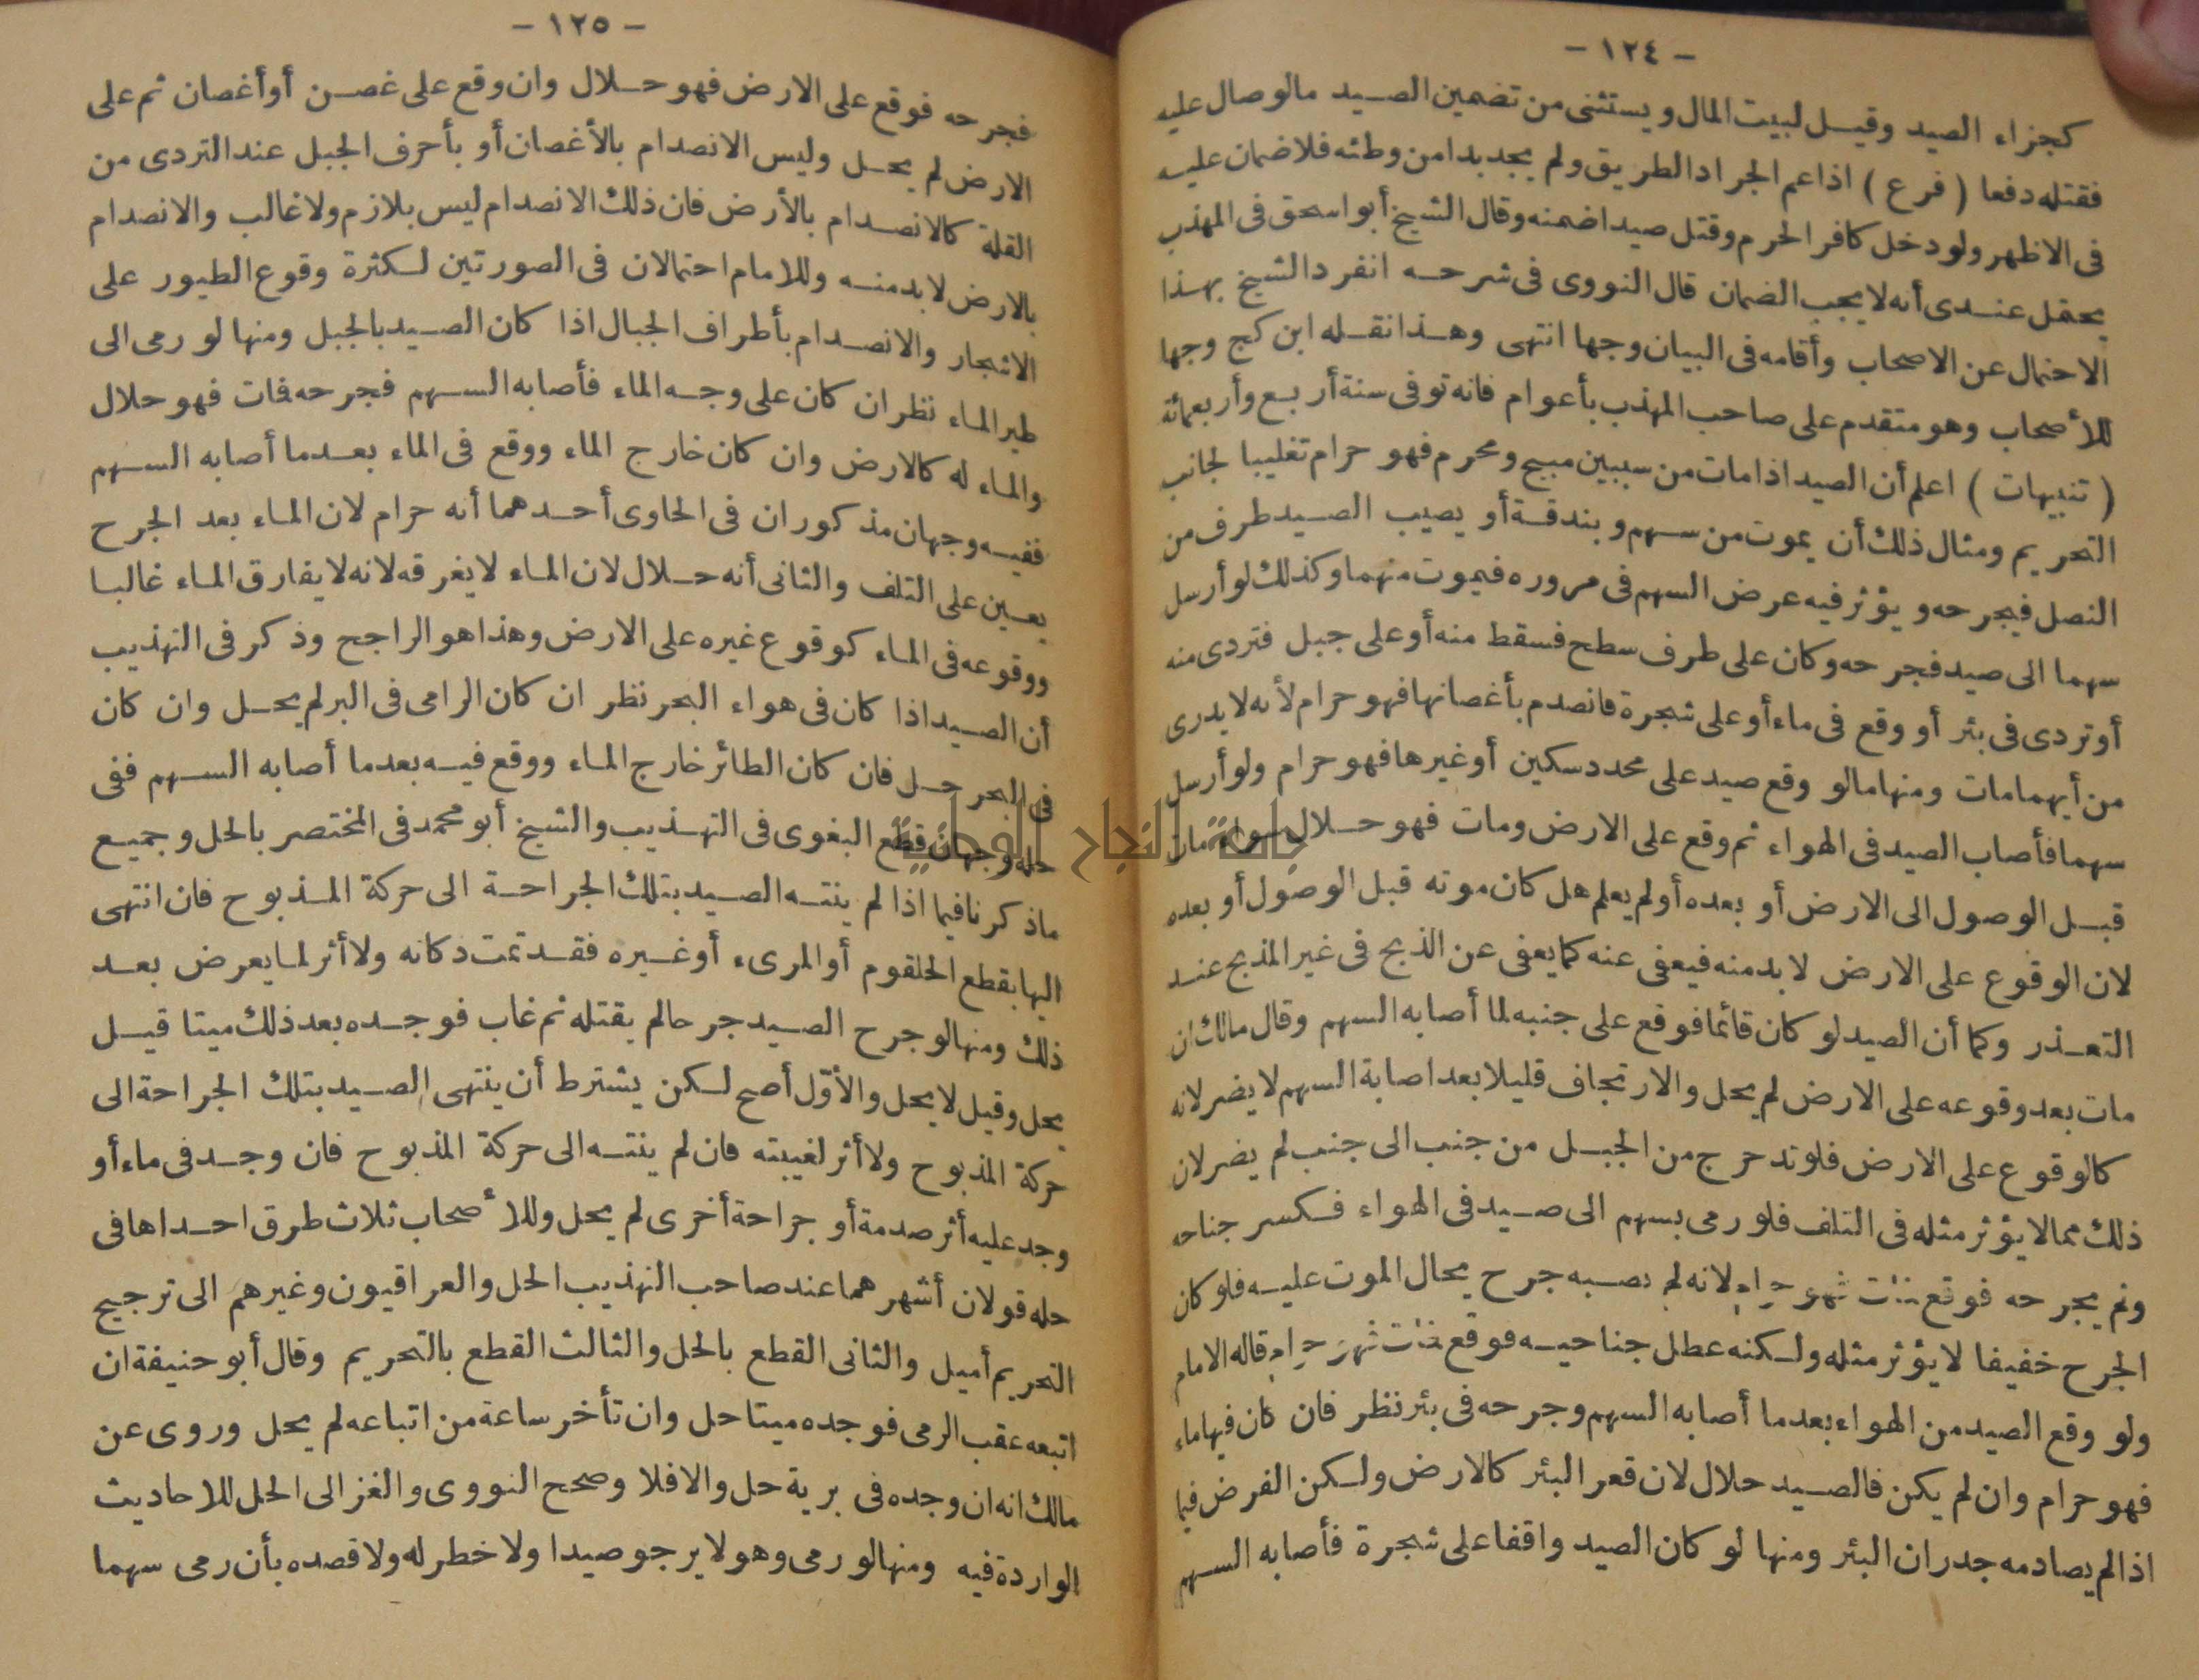 - ١٢٤ -
كجزاء الصيد وقيل لبيت المال ويستثنى من تضمين الصيد مالوصال عليه
فقتله دفعا ( فرع ) اذا عم الجراد الطريق ولم يجد بدا من وطئه فلا ضمان عليه
فى الاظهر ولو دخل كافر الحرم وقتل صيدا ضمنه وقال الشيخ أبو اسحق فى المهذب
يحتمل عندى أنه لا يجب الضمان قال النووى فى شرحه انفرد الشيخ بهذا
الاحتمال عن الاصحاب وأقامه فى البيان وجها انتهى وهذا نقله ابن كج وجها
للأصحاب وهو متقدم على صاحب المهذب بأعوام فانه توفى سنة أربع وأربعمائة
( تنبيهات ) اعلم أن الصيد اذا مات من سببين مبيح ومحرم فهو حرام تغليبا لجانب
التحريم ومثال ذلك أن يموت من سهم وبندقة أو يصيب الصيد طرف من
النصل فيجرحه ويؤثر فيه عرض السهم فى مروره فيموت منهما وكذلك لو أرسل
سهما الى صيد فجرحه وكان على طرف سطح فسقط منه أو على جبل فتردى منه
أو تردى فى بئر أو وقع فى ماء أو على شجرة فانصدم بأغصانها فهو حرام لأنه لا يدرى
من أيهما مات ومنها مالو وقع صيد على محدد سكين أو غيرها فهو حرام ولو أرسل
سهما فأصاب الصيد فى الهواء ثم وقع على الارض ومات فهو حلال سواء مات
قبل الوصول الى الارض أو بعده أو لم يعلم هل كان موته قبل الوصول أو بعده
لان الوقوع على الارض لا بد منه فيعفى عنه كما يعفى عن الذبح فى غير المذبح عند
التعذر وكما أن الصيد لو كان قائما فوقع على جنبه لما أصابه السهم وقال مالك ان
مات بعد وقوعه على الارض لم يحل والارتجاف قليلا بعد اصابة السهم لا يضر لانه
كالوقوع على الارض فلو تدحرج من الجبل من جنب الى جنب لم يضر لان
ذلك مما لا يؤثر مثله فى التلف فلو رمى بسهم الى صيد فى الهواء فكسر جناحه
ولم يجرحه فوقع فمات فهو حرام لانه لم يصبه جرح يحال الموت عليه فلو كان
الجرح خفيفا لا يؤثر مثله ولكنه عطل جناحيه فوقع فمات فهو حرام قاله الامام
ولو وقع الصيد من الهواء بعد ما أصابه السهم وجرحه فى بئر نظر فان كان فيها ماء
فهو حرام وان لم يكن فالصيد حلال لان قعر البئر كالارض ولكن الفرض فيما
اذا لم يصادمه جدران البئر ومنها لو كان الصيد واقفا على شجرة فأصابه السهم
- ١٢٥ -
فجرحه فوقع على الارض فهو حلال وان وقع على غصن أو أغصان ثم على
الارض لم يحل وليس الانصدام بالأغصان أو بأحرف الجبل عند التردى من
القلة كالانصدام بالأرض فان ذلك الانصدام ليس بلازم ولا غالب والانصدام
بالارض لا بد منه وللامام احتمالان فى الصورتين لكثرة وقوع الطيور على
الاشجار والانصدام بأطراف الجبال اذا كان الصيد بالجبل ومنها لو رمى الى
طير الماء نظر ان كان على وجه الماء فأصابه السهم فجرحه فمات فهو حلال
والماء له كالارض وان كان خارج الماء ووقع فى الماء بعد ما أصابه السهم
ففيه وجهان مذكوران فى الحاوى أحدهما أنه حرام لان الماء بعد الجرح
يعين على التلف والثانى أنه حلال لان الماء لا يغرقه لانه لا يفارق الماء غالبا
ووقوعه فى الماء كوقوع غيره على الارض وهذا هو الراجح وذكر فى التهذيب
أن الصيد اذا كان فى هواء البحر نظر ان كان الرامى فى البر لم يحل وان كان
فى البحر حل فان كان الطائر خارج الماء ووقع فيه بعد ما أصابه السهم ففى
حله وجهان قطع البغوى فى التهذيب والشيخ أبو محمد فى المختصر بالحل وجميع
ما ذكرنا فيما اذا لم ينته الصيد بتلك الجراحة الى حركة المذبوح فان انتهى
اليها بقطع الحلقوم أو المرىء أو غيره فقد تمت ذكاته ولا أثر لما يعرض بعد
ذلك ومنها لو جرح الصيد جرحا لم يقتله ثم غاب فوجده بعد ذلك ميتا قيل
يحل وقيل لا يحل والأول أصح لكن يشترط أن ينتهى الصيد بتلك الجراحة الى
حركة المذبوح ولا أثر لغيبته فان لم ينته الى حركة المذبوح فان وجد فى ماء أو
وجد عليه أثر صدمة أو جراحة أخرى لم يحل وللأصحاب ثلاث طرق احداها فى
حله قولان أشهرهما عند صاحب التهذيب الحل والعراقيون وغيرهم الى ترجيح
التحريم أميل والثانى القطع بالحل والثالث القطع بالتحريم وقال أبو حنيفة ان
اتبعه عقب الرمى فوجده ميتا حل وان تأخر ساعة من اتباعه لم يحل وروى عن
مالك انه ان وجده فى برية حل والا فلا وصحح النووى والغزالى الحل للاحاديث
الواردة فيه ومنها لو رمى وهو لا يرجو صيدا ولا خطر له ولا قصده بأن رمى سهما
جامعة النجاح الوطنية